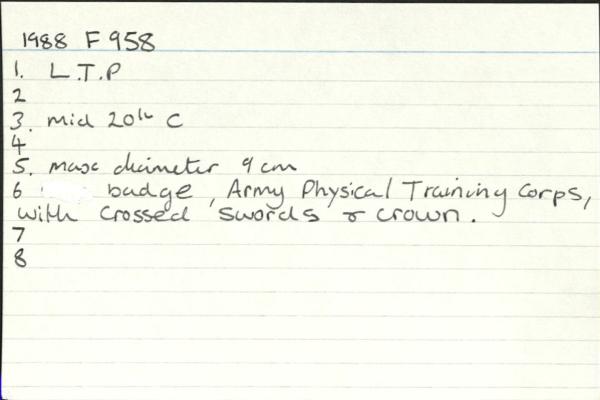 1988 F 958
1. L.T.P
2
3. mid 20th C
4
5. max diameter 9 cm
6 badge, Army Physical Training Corps,
with crossed swords & crown.
7
8